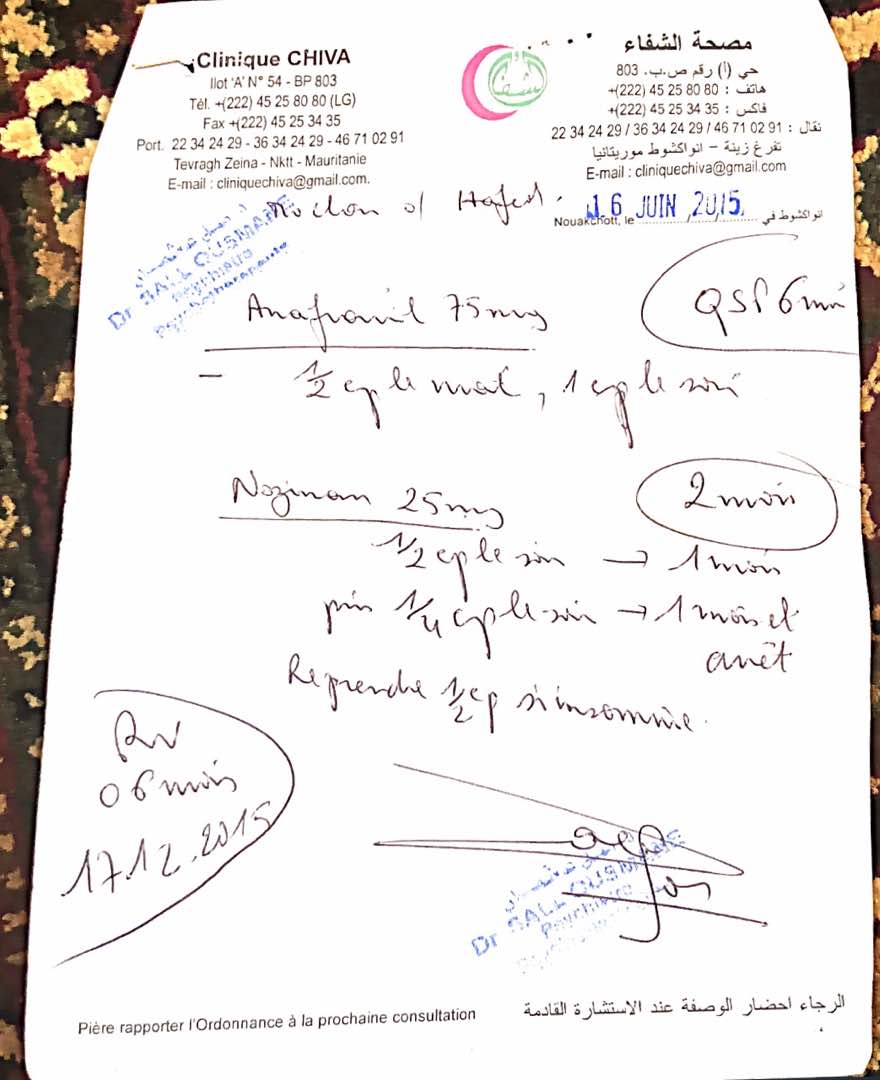 Clinique CHIVA
Ilot 'A' N° 54 - BP 803
Tél. +(222) 45 25 80 80 (LG)
Fax +(222) 45 25 34 35
Port. 22 34 24 29 - 36 34 24 29 - 46 71 02 91
Tevragh Zeina - Nktt - Mauritanie
E-mail : cliniquechiva@gmail.com.
مصحة الشفاء
حي (أ) رقم ص.ب. 803
هاتف : 80 80 25 45 (222)+
فاكس : 35 34 25 45 (222)+
نقال : 22 34 24 29 / 36 34 24 29 / 46 71 02 91
تفرغ زينة - انواكشوط موريتانيا
E-mail : cliniquechiva@gmail.com
Nouakchott, le 16 JUIN 2015 انواكشوط في
Dr SALL OUSMANE
Psychiatre
Psychothérapeute
Anafranil 75mg QSP 6 mois
- 1/2 cp le mat, 1 cp le soir
Nozinan 25mg 2 mois
1/2 cp le soir → 1 mois
puis 1/4 cp le soir → 1 mois et
arrêt
Reprendre 1/2 cp si insomnie.
RV
06 mois
17.12.2015
Dr SALL OUSMANE
Psychiatre
Pière rapporter l'Ordonnance à la prochaine consultation
الرجاء احضار الوصفة عند الاستشارة القادمة